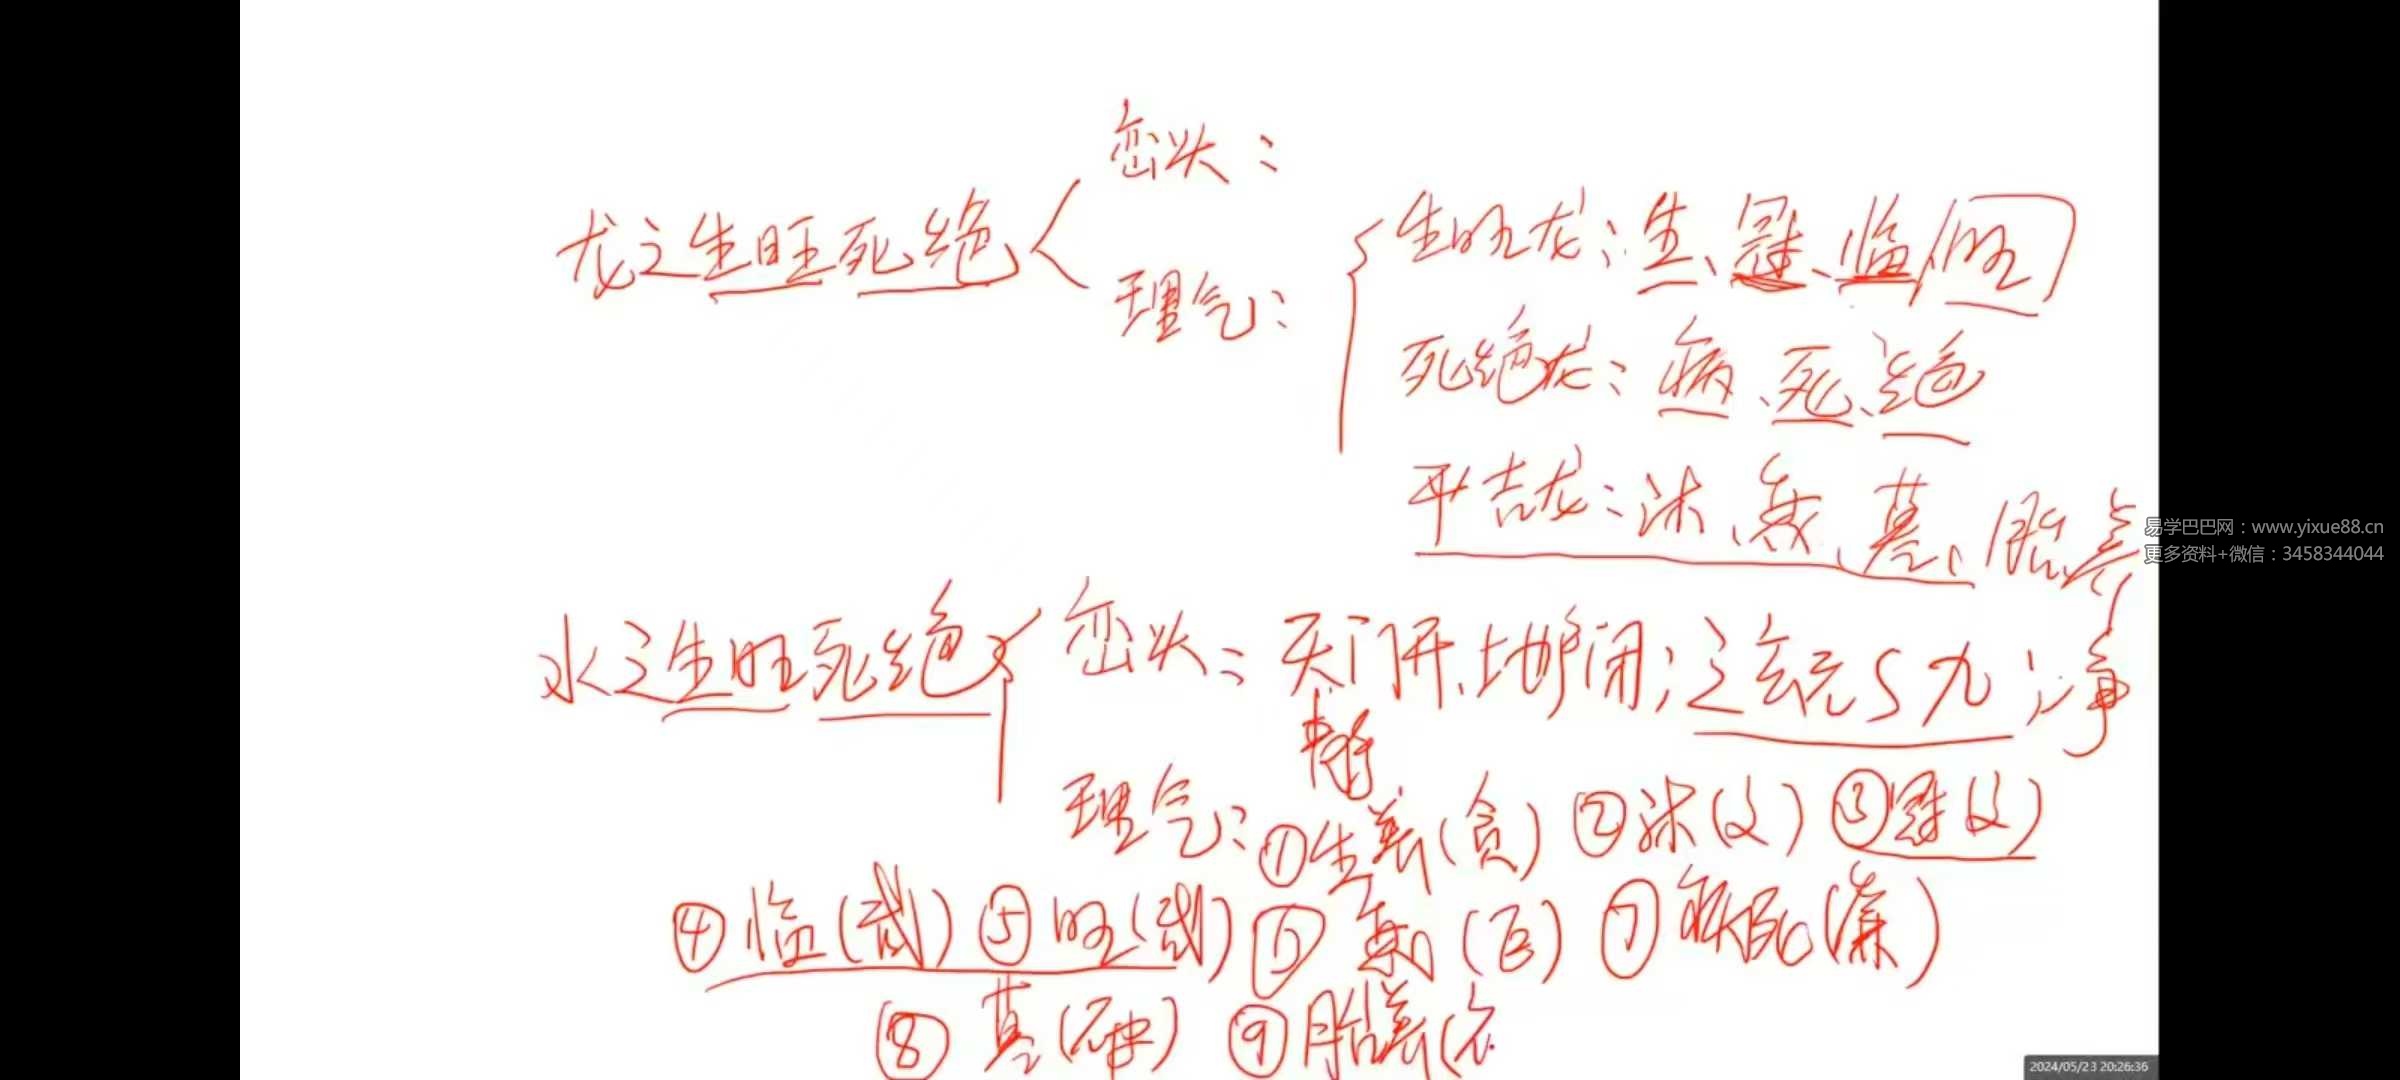 峦头：
龙之生旺死绝
理气：
生旺龙：生、冠、临、旺
死绝龙：病、死、绝
平吉龙：沐、衰、墓、胎养
水之生旺死绝
峦头：天门开、地户闭；之玄元ㄣ九；净
静
理气：①生养(贪) ②沐(文) ③冠(文)
④临(武) ⑤旺(武) ⑥衰(巨) ⑦病死(廉)
⑧墓(破) ⑨胎养(
易学巴巴网：www.yixue88.cn
更多资料+微信：3458344044
2024/05/23 20:26:36